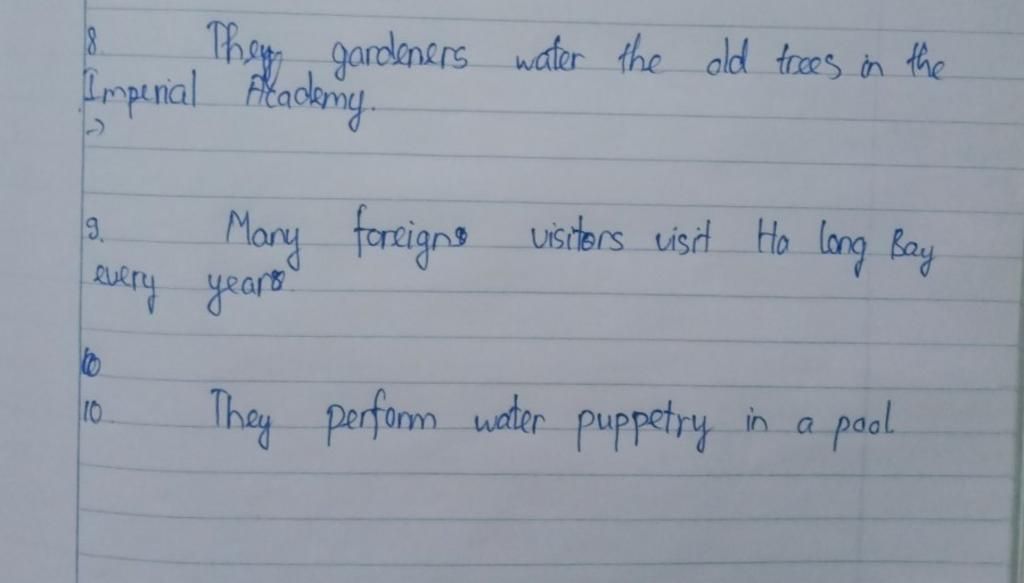 8. They gardeners water the old trees in the
Imperial Academy.
→
9. Many foreign visitors visit Ha long Bay
every year
10
10. They perform water puppetry in a pool